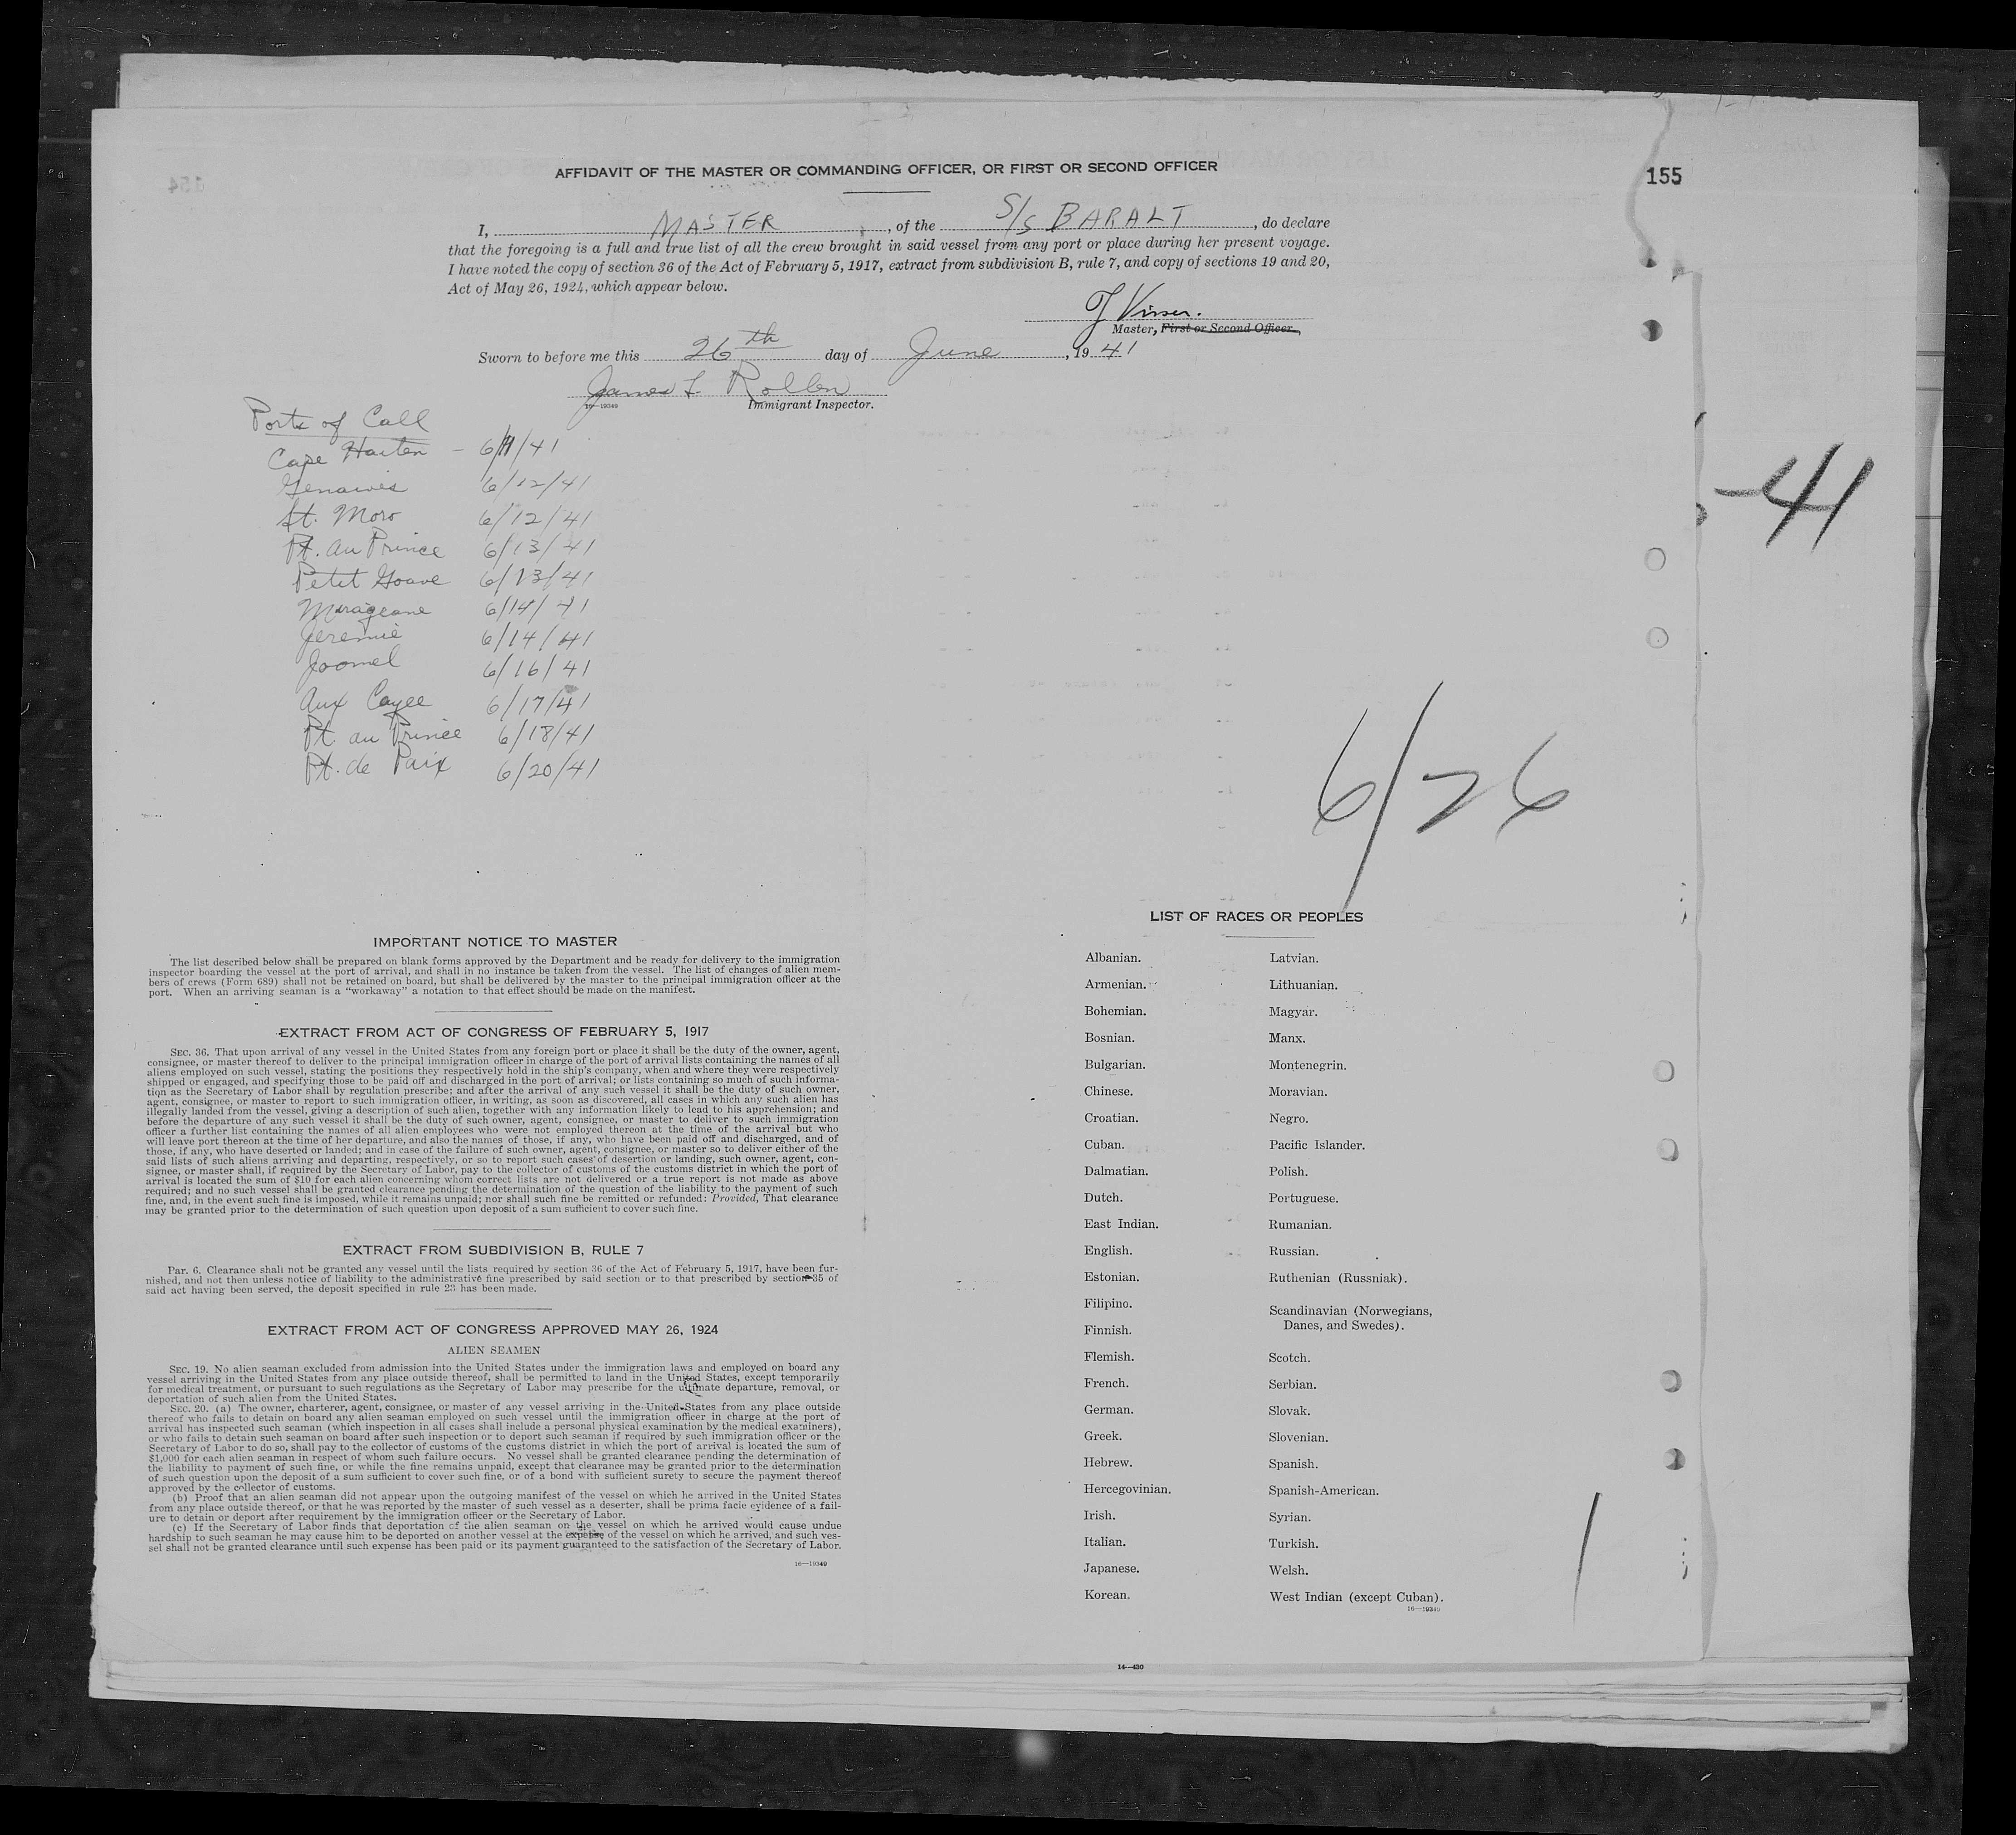 AFFIDAVIT OF THE MASTER OR COMMANDING OFFICER, OR FIRST OR SECOND OFFICER
155
I, MASTER, of the S/S BARALT, do declare
that the foregoing is a full and true list of all the crew brought in said vessel from any port or place during her present voyage.
I have noted the copy of section 36 of the Act of February 5, 1917, extract from subdivision B, rule 7, and copy of sections 19 and 20,
Act of May 26, 1924, which appear below.
Visser.
Master, First or Second Officer.
Sworn to before me this 26th day of June, 1941
James
16—19349 Immigrant Inspector.
Ports of Call
Cape Haiten - 6/11/41
6/12/41
St. Moro 6/12/41
Pt. au Prince 6/13/41
Petit Goave 6/13/41
Miragoane 6/14/41
Jeremie 6/14/41
Jacmel 6/16/41
Aux Cayee 6/17/41
Pt. au Prince 6/18/41
Pt. de Paix 6/20/41
-41
6/26
IMPORTANT NOTICE TO MASTER
The list described below shall be prepared on blank forms approved by the Department and be ready for delivery to the immigration
inspector boarding the vessel at the port of arrival, and shall in no instance be taken from the vessel. The list of changes of alien mem-
bers of crews (Form 689) shall not be retained on board, but shall be delivered by the master to the principal immigration officer at the
port. When an arriving seaman is a "workaway" a notation to that effect should be made on the manifest.
EXTRACT FROM ACT OF CONGRESS OF FEBRUARY 5, 1917
SEC. 36. That upon arrival of any vessel in the United States from any foreign port or place it shall be the duty of the owner, agent,
consignee, or master thereof to deliver to the principal immigration officer in charge of the port of arrival lists containing the names of all
aliens employed on such vessel, stating the positions they respectively hold in the ship's company, when and where they were respectively
shipped or engaged, and specifying those to be paid off and discharged in the port of arrival; or lists containing so much of such informa-
tion as the Secretary of Labor shall by regulation prescribe; and after the arrival of any such vessel it shall be the duty of such owner,
agent, consignee, or master to report to such immigration officer, in writing, as soon as discovered, all cases in which any such alien has
illegally landed from the vessel, giving a description of such alien, together with any information likely to lead to his apprehension; and
before the departure of any such vessel it shall be the duty of such owner, agent, consignee, or master to deliver to such immigration
officer a further list containing the names of all alien employees who were not employed thereon at the time of the arrival but who
will leave port thereon at the time of her departure, and also the names of those, if any, who have been paid off and discharged, and of
those, if any, who have deserted or landed; and in case of the failure of such owner, agent, consignee, or master so to deliver either of the
said lists of such aliens arriving and departing, respectively, or so to report such cases of desertion or landing, such owner, agent, con-
signee, or master shall, if required by the Secretary of Labor, pay to the collector of customs of the customs district in which the port of
arrival is located the sum of $10 for each alien concerning whom correct lists are not delivered or a true report is not made as above
required; and no such vessel shall be granted clearance pending the determination of the question of the liability to the payment of such
fine, and, in the event such fine is imposed, while it remains unpaid; nor shall such fine be remitted or refunded: Provided, That clearance
may be granted prior to the determination of such question upon deposit of a sum sufficient to cover such fine.
EXTRACT FROM SUBDIVISION B, RULE 7
Par. 6. Clearance shall not be granted any vessel until the lists required by section 36 of the Act of February 5, 1917, have been fur-
nished, and not then unless notice of liability to the administrative fine prescribed by said section or to that prescribed by section 35 of
said act having been served, the deposit specified in rule 23 has been made.
EXTRACT FROM ACT OF CONGRESS APPROVED MAY 26, 1924
ALIEN SEAMEN
SEC. 19. No alien seaman excluded from admission into the United States under the immigration laws and employed on board any
vessel arriving in the United States from any place outside thereof, shall be permitted to land in the United States, except temporarily
for medical treatment, or pursuant to such regulations as the Secretary of Labor may prescribe for the ultimate departure, removal, or
deportation of such alien from the United States.
SEC. 20. (a) The owner, charterer, agent, consignee, or master of any vessel arriving in the United States from any place outside
thereof who fails to detain on board any alien seaman employed on such vessel until the immigration officer in charge at the port of
arrival has inspected such seaman (which inspection in all cases shall include a personal physical examination by the medical examiners),
or who fails to detain such seaman on board after such inspection or to deport such seaman if required by such immigration officer or the
Secretary of Labor to do so, shall pay to the collector of customs of the customs district in which the port of arrival is located the sum of
$1,000 for each alien seaman in respect of whom such failure occurs. No vessel shall be granted clearance pending the determination of
the liability to payment of such fine, or while the fine remains unpaid, except that clearance may be granted prior to the determination
of such question upon the deposit of a sum sufficient to cover such fine, or of a bond with sufficient surety to secure the payment thereof
approved by the collector of customs.
(b) Proof that an alien seaman did not appear upon the outgoing manifest of the vessel on which he arrived in the United States
from any place outside thereof, or that he was reported by the master of such vessel as a deserter, shall be prima facie evidence of a fail-
ure to detain or deport after requirement by the immigration officer or the Secretary of Labor.
(c) If the Secretary of Labor finds that deportation of the alien seaman on the vessel on which he arrived would cause undue
hardship to such seaman he may cause him to be deported on another vessel at the expense of the vessel on which he arrived, and such ves-
sel shall not be granted clearance until such expense has been paid or its payment guaranteed to the satisfaction of the Secretary of Labor.
16—19349
LIST OF RACES OR PEOPLES
Albanian. Latvian.
Armenian. Lithuanian.
Bohemian. Magyar.
Bosnian. Manx.
Bulgarian. Montenegrin.
Chinese. Moravian.
Croatian. Negro.
Cuban. Pacific Islander.
Dalmatian. Polish.
Dutch. Portuguese.
East Indian. Rumanian.
English. Russian.
Estonian. Ruthenian (Russniak).
Filipino. Scandinavian (Norwegians,
Finnish. Danes, and Swedes).
Flemish. Scotch.
French. Serbian.
German. Slovak.
Greek. Slovenian.
Hebrew. Spanish.
Hercegovinian. Spanish-American.
Irish. Syrian.
Italian. Turkish.
Japanese. Welsh.
Korean. West Indian (except Cuban).
16—19349
14—430